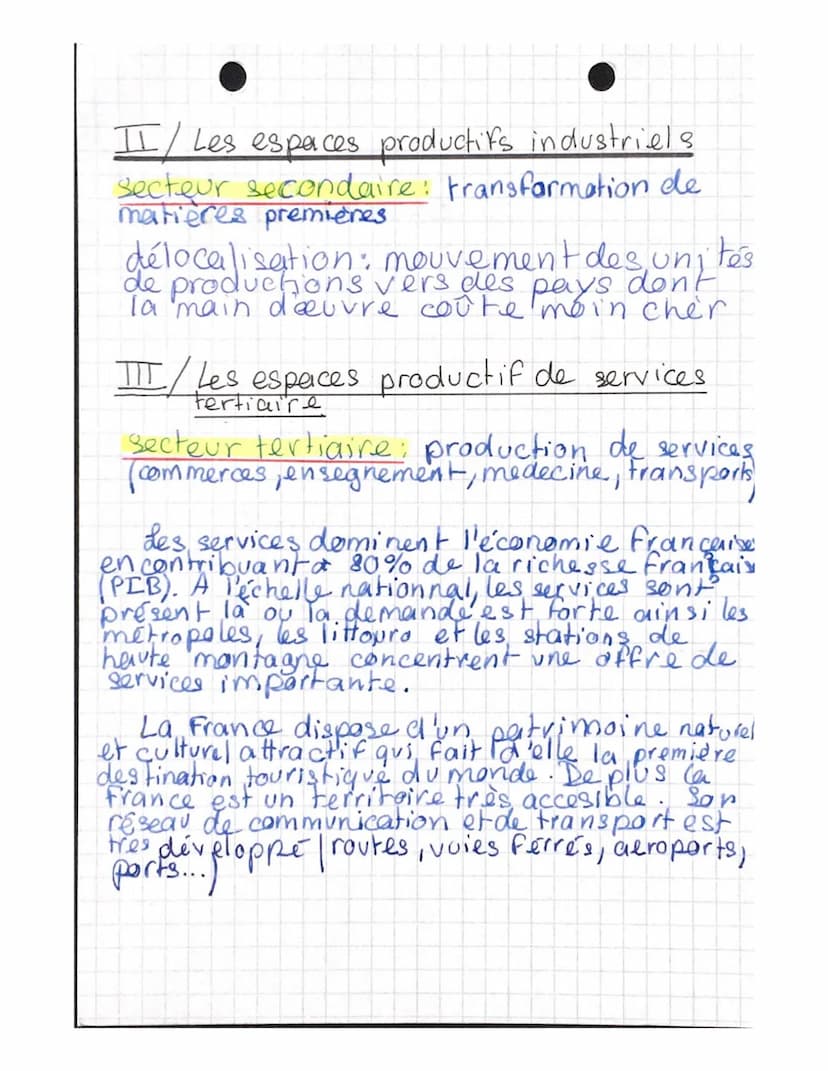 II/ Les espaces productifs industriels
secteur secondaire: transformation de
matières premières
délocalisation: mouvement des unités
de productions vers des pays dont
la main d'œuvre coûte moin cher
III/ Les espaces productif de services
tertiaire
secteur tertiaire: production de services
(commerces, ensegnement, medecine, transports)
Les services dominent l'économie française
en contribuant à 80% de la richesse français
(PIB). A l'échelle nationnal, les services sont
présent là où la demande est forte ainsi les
métropoles, les littouro et les stations de
haute montagne concentrent une offre de
services importante.
La France dispose d'un patrimoine naturel
et culturel attractif qui fait d'elle la première
destination touristique du monde. De plus la
France est un territoire très accesible. Son
réseau de communication et de transport est
très développé (routes, voies ferrés, aeroports,
ports...)